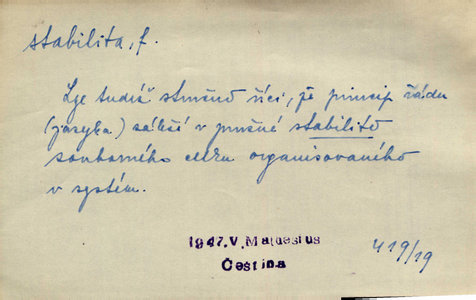 stabilita, f.
Lze tudíž stručně říci, že princip řádu
(jazyka) záleží v pružné stabilitě
souborného celku organisovaného
v systém.
1947.V.Mathesius
Čeština
419/19